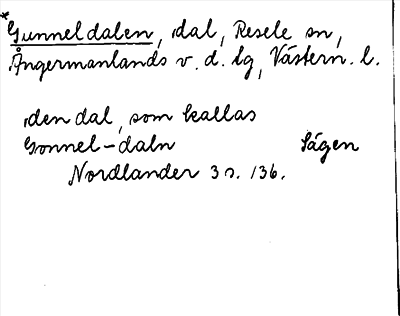 *Gunneldalen, dal, Resele sn,
Ångermanlands v. d. lg, Västern. l.
den dal, som kallas
Gonnel-daln Sägen
Nordlander 3 s. 136.